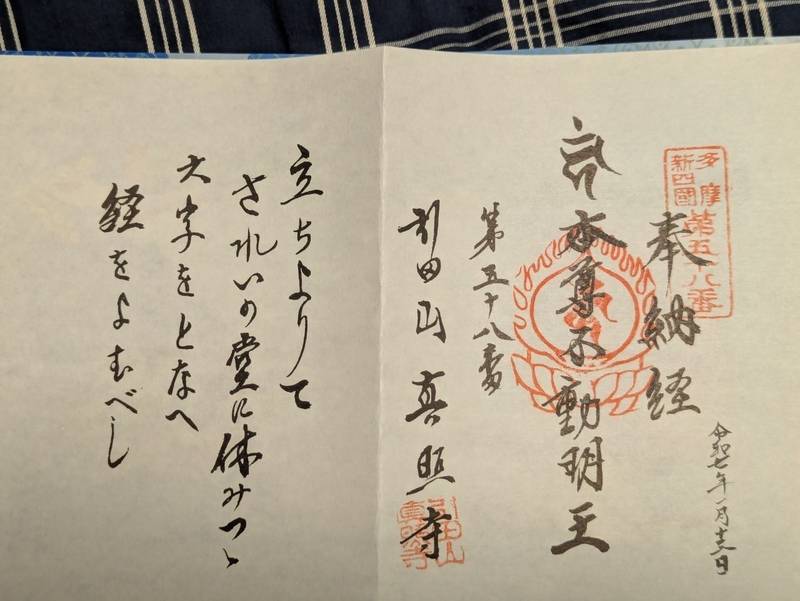 多摩
新四國
第五十八番
令和七年一月十三日
奉納経
本尊不動明王
第五十八番
引田山真照寺
引田山
真照寺
立ちよりて
されいの堂に休みつゝ
六字をとなへ
経をよむべし